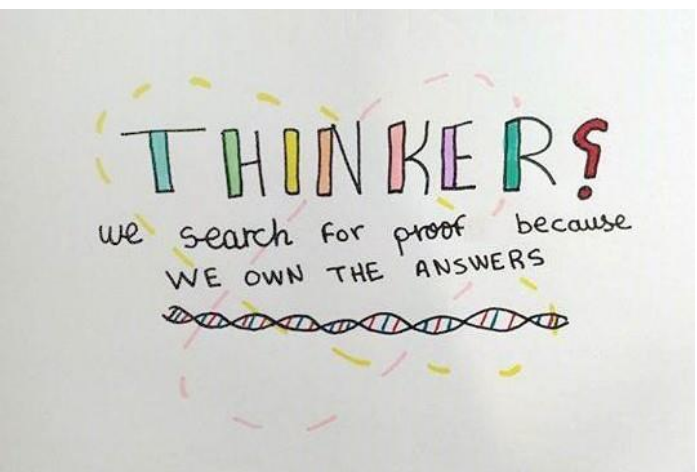 THINKER?
we search for proof because
WE OWN THE ANSWERS